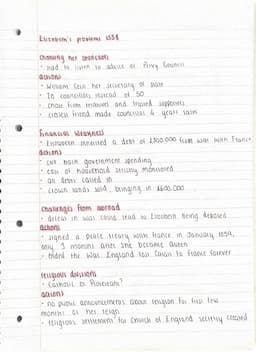 Elizabeth's problems 1558
Choosing her councillors
• had to listen to advice of Privy Council
actions
• William Cecil her secretary of state
• 20 councillors instead of 50
• chose from relatives and trusted supporters
• closest friend made councillor 4 years later
Financial weakness
• Elizabeth inherited a debt of £300,000 from war with France
actions
• cut back government spending
• cost of household strictly monitored
• all debts called in
• crown lands sold, bringing in £600,000
Challenges from abroad
• defeat in war could lead to Elizabeth being deposed
actions
• signed a peace treaty with France in January 1559,
only 3 months after she became Queen
• ended the war. England lost Calais to France forever
religious divisions
• Catholic or Protestant?
actions
• no public announcements about religion for first few
months of her reign
• religious settlement for Church of England secretly created